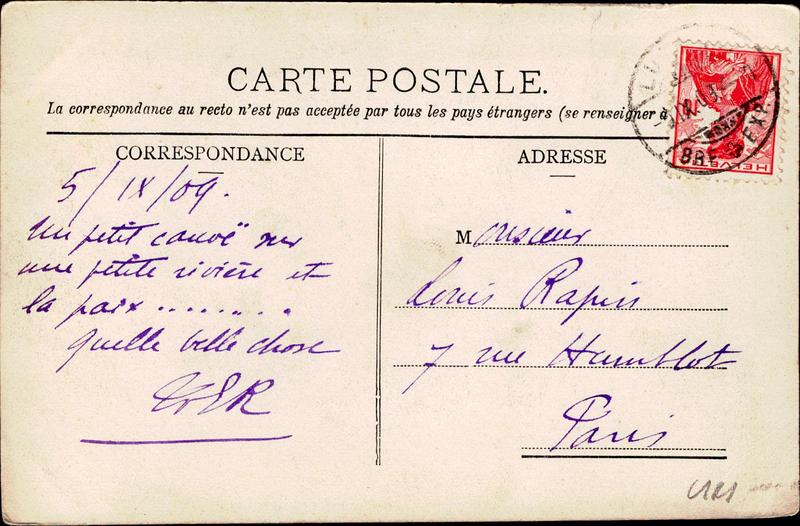 CARTE POSTALE.
La correspondance au recto n'est pas acceptée par tous les pays étrangers (se renseigner à
CORRESPONDANCE
5/IX/09.
Un petit canoë sur
une petite rivière et
la paix .........
quelle belle chose
ADRESSE
Monsieur
Louis Rapin
7 rue Humblot
Paris
BRF. EXP.
HELVE